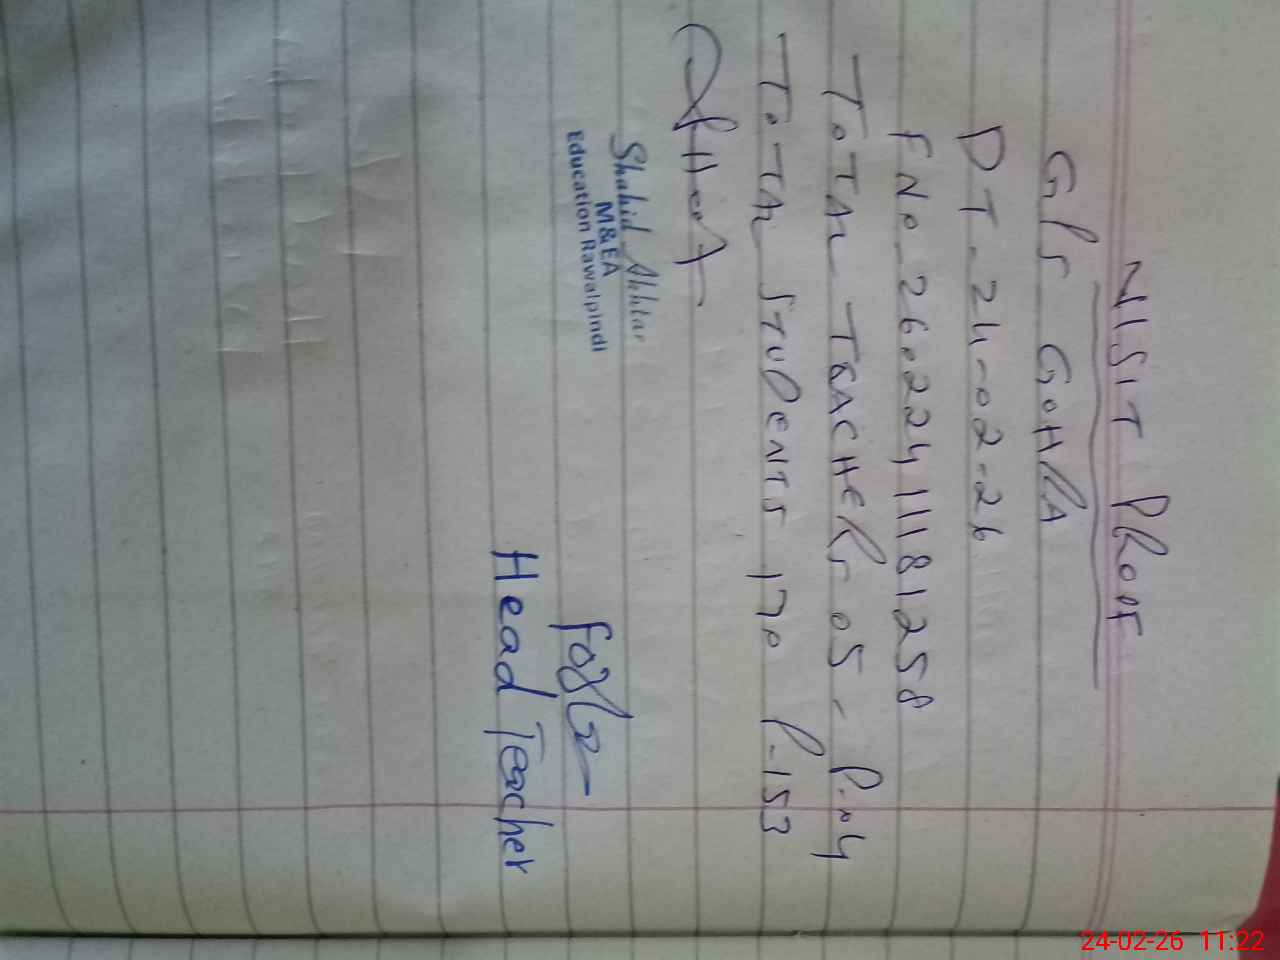 VISIT PROOF
GPS GOHRA
DT-24-02-26
F No-26022411181258
TOTAL TEACHERS 05- P-04
TOTAL STUDENTS 170 P-153
Shahid Akhtar
M&EA
Education Rawalpindi
Head Teacher
24-02-26 11:22